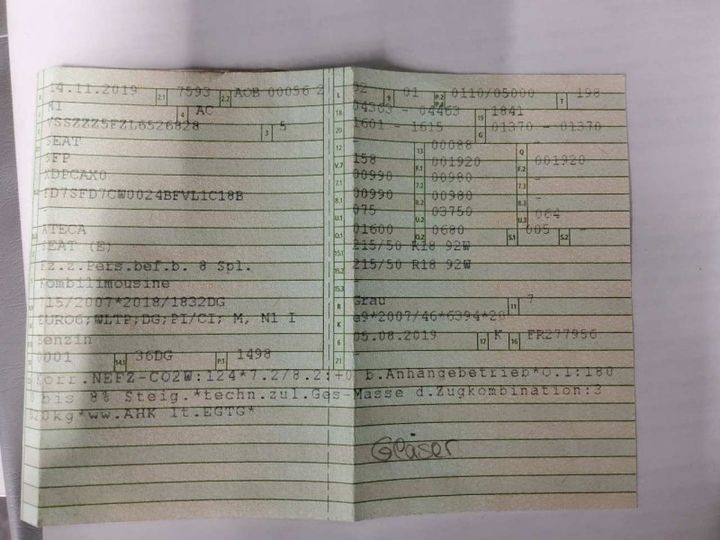 14.11.2019 2.1 7593 2.2 AOB 00056 2
M1 4 AC
VSSZZZ5FZL6526828 3 5
SEAT
5FP
XDPCAX0
FD7SFD7CW0024BFVL1C18B
-
ATECA
SEAT (E)
Fz.z.Pers.bef.b. 8 Spl.
Kombilimousine
715/2007*2018/1832DG
EURO6;WLTP;DG;PI/CI; M, N1 I
Benzin
0001 14.1 36DG P.1 1498
L 02 9 01 P.2 P.4 0110/05000 T 198
18 04363 - 04463 19 1841
20 1601 - 1615 G 01370 - 01370
12 - 13 00088 Q -
V.7 158 F.1 001920 F.2 001920
7.1 00990 7.2 00980 7.3 -
8.1 00990 8.2 00980 8.3 -
U.1 075 U.2 03750 U.3 064
O.1 01600 O.2 0680 S.1 005 S.2 -
15.1 215/50 R18 92W
15.2 215/50 R18 92W
15.3 -
R Grau 11 7
K e9*2007/46*6394*20
6 05.08.2019 17 K 16 FR277956
21 -
Korr.NEFZ-CO2W:124*7.2/8.2:+0 b.Anhängebetrieb*O.1:180
0 bis 8% Steig.*techn.zul.Ges-Masse d.Zugkombination:3
620kg*ww.AHK lt.EGTG*
Gläser